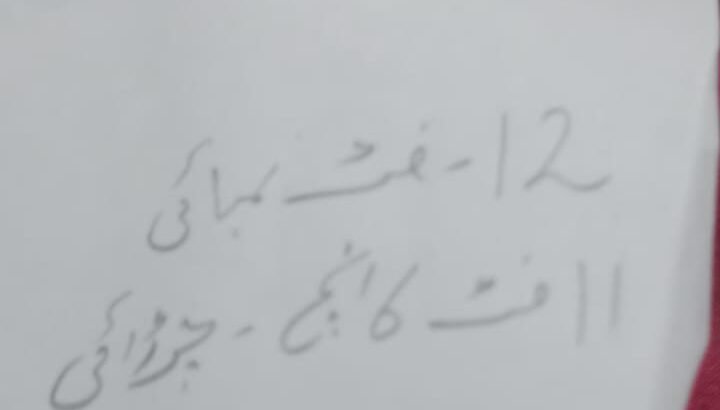 12 - فٹ لمبائی
11 فٹ 6 انچ - چوڑائی